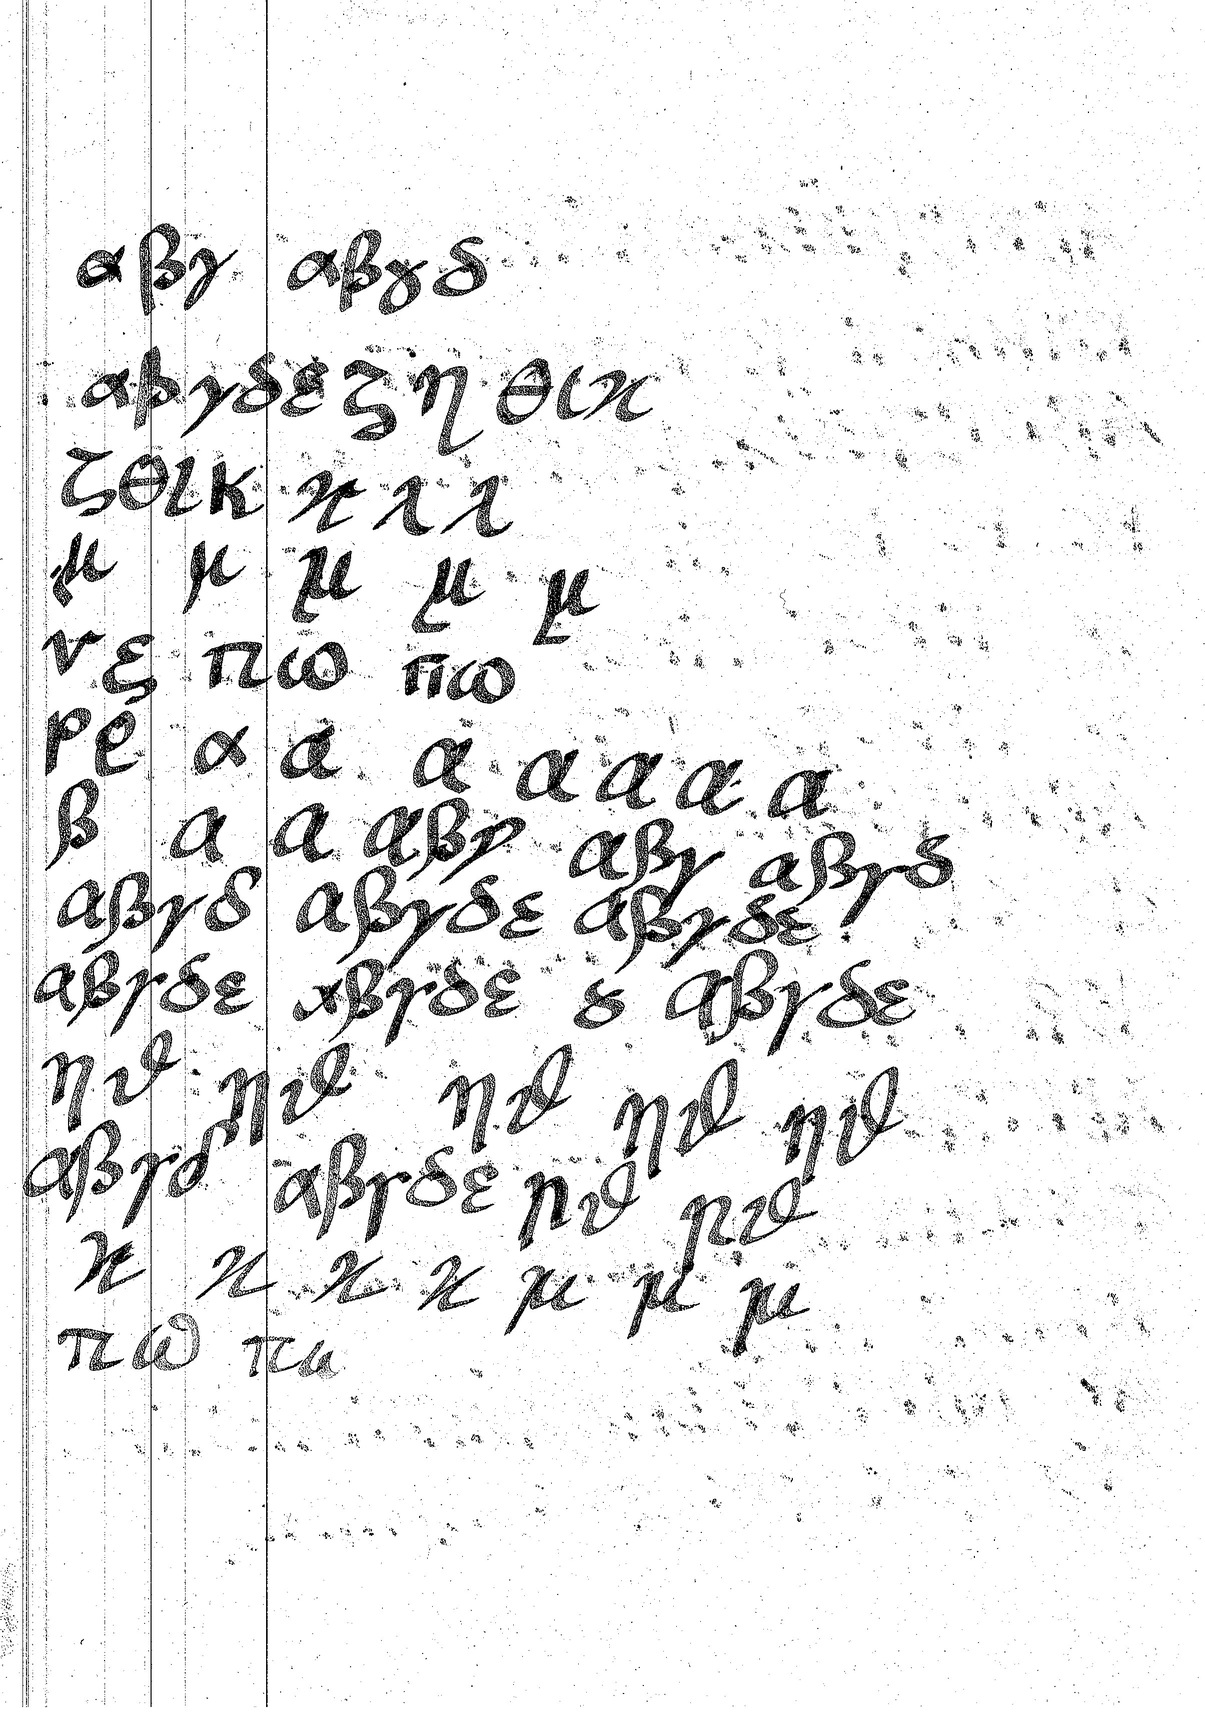 αβγ αβγδ
αβγδεζηθικ
ζθικ ϰ λ λ
μ μ μ μ μ
νξ πω πω
ρρ α α α α α α α
β α α αβγ αβγ αβγδ
αβγδ αβγδε αβγδε
αβγδε αβγδε γ αβγδε
ηιϑ ηιϑ ηιϑ ηιϑ ηιϑ
αβγδ αβγδε ηιϑ ηιϑ
ϰ ϰ ϰ ϰ μ μ μ
πω πω